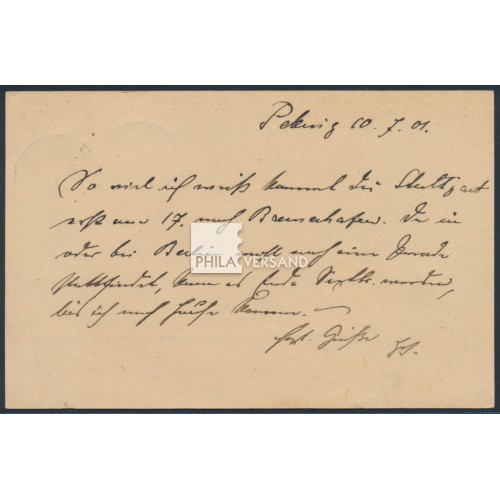 Peking 10.7.01.
So viel ich weiß kommt die Stuttgart
erst am 17. nach Bremerhafen. Da in
oder bei Berlin noch eine Parade
stattfindet, kann es Ende Septbr. werden,
bis ich nach Hause komme. –
Hrzl. Grüße
PHILA VERSAND